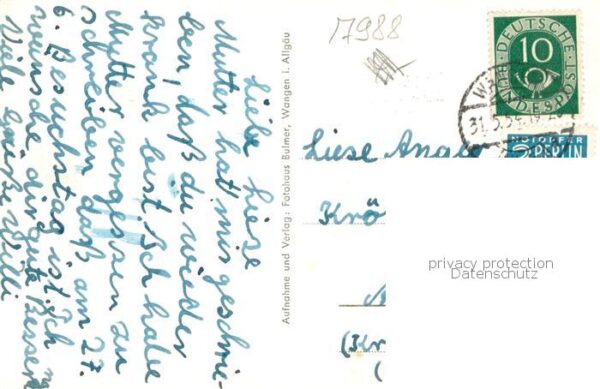 Liebe Liese
Mutter hat mir geschrie-
ben, daß du wieder
krank bist. Ich habe
Mutter vergessen zu
schreiben daß am 27.
6. Besuchstag ist. Ich
wünsche dir gute Besserung
Viele Grüße Willi
Aufnahme und Verlag: Fotohaus Bulmer, Wangen i. Allgäu
17988
DEUTSCHE
10
BUNDESPOST
NOTOPFER
2 BERLIN
Liese Ange
Krö
(Kr
(
privacy protection
Datenschutz